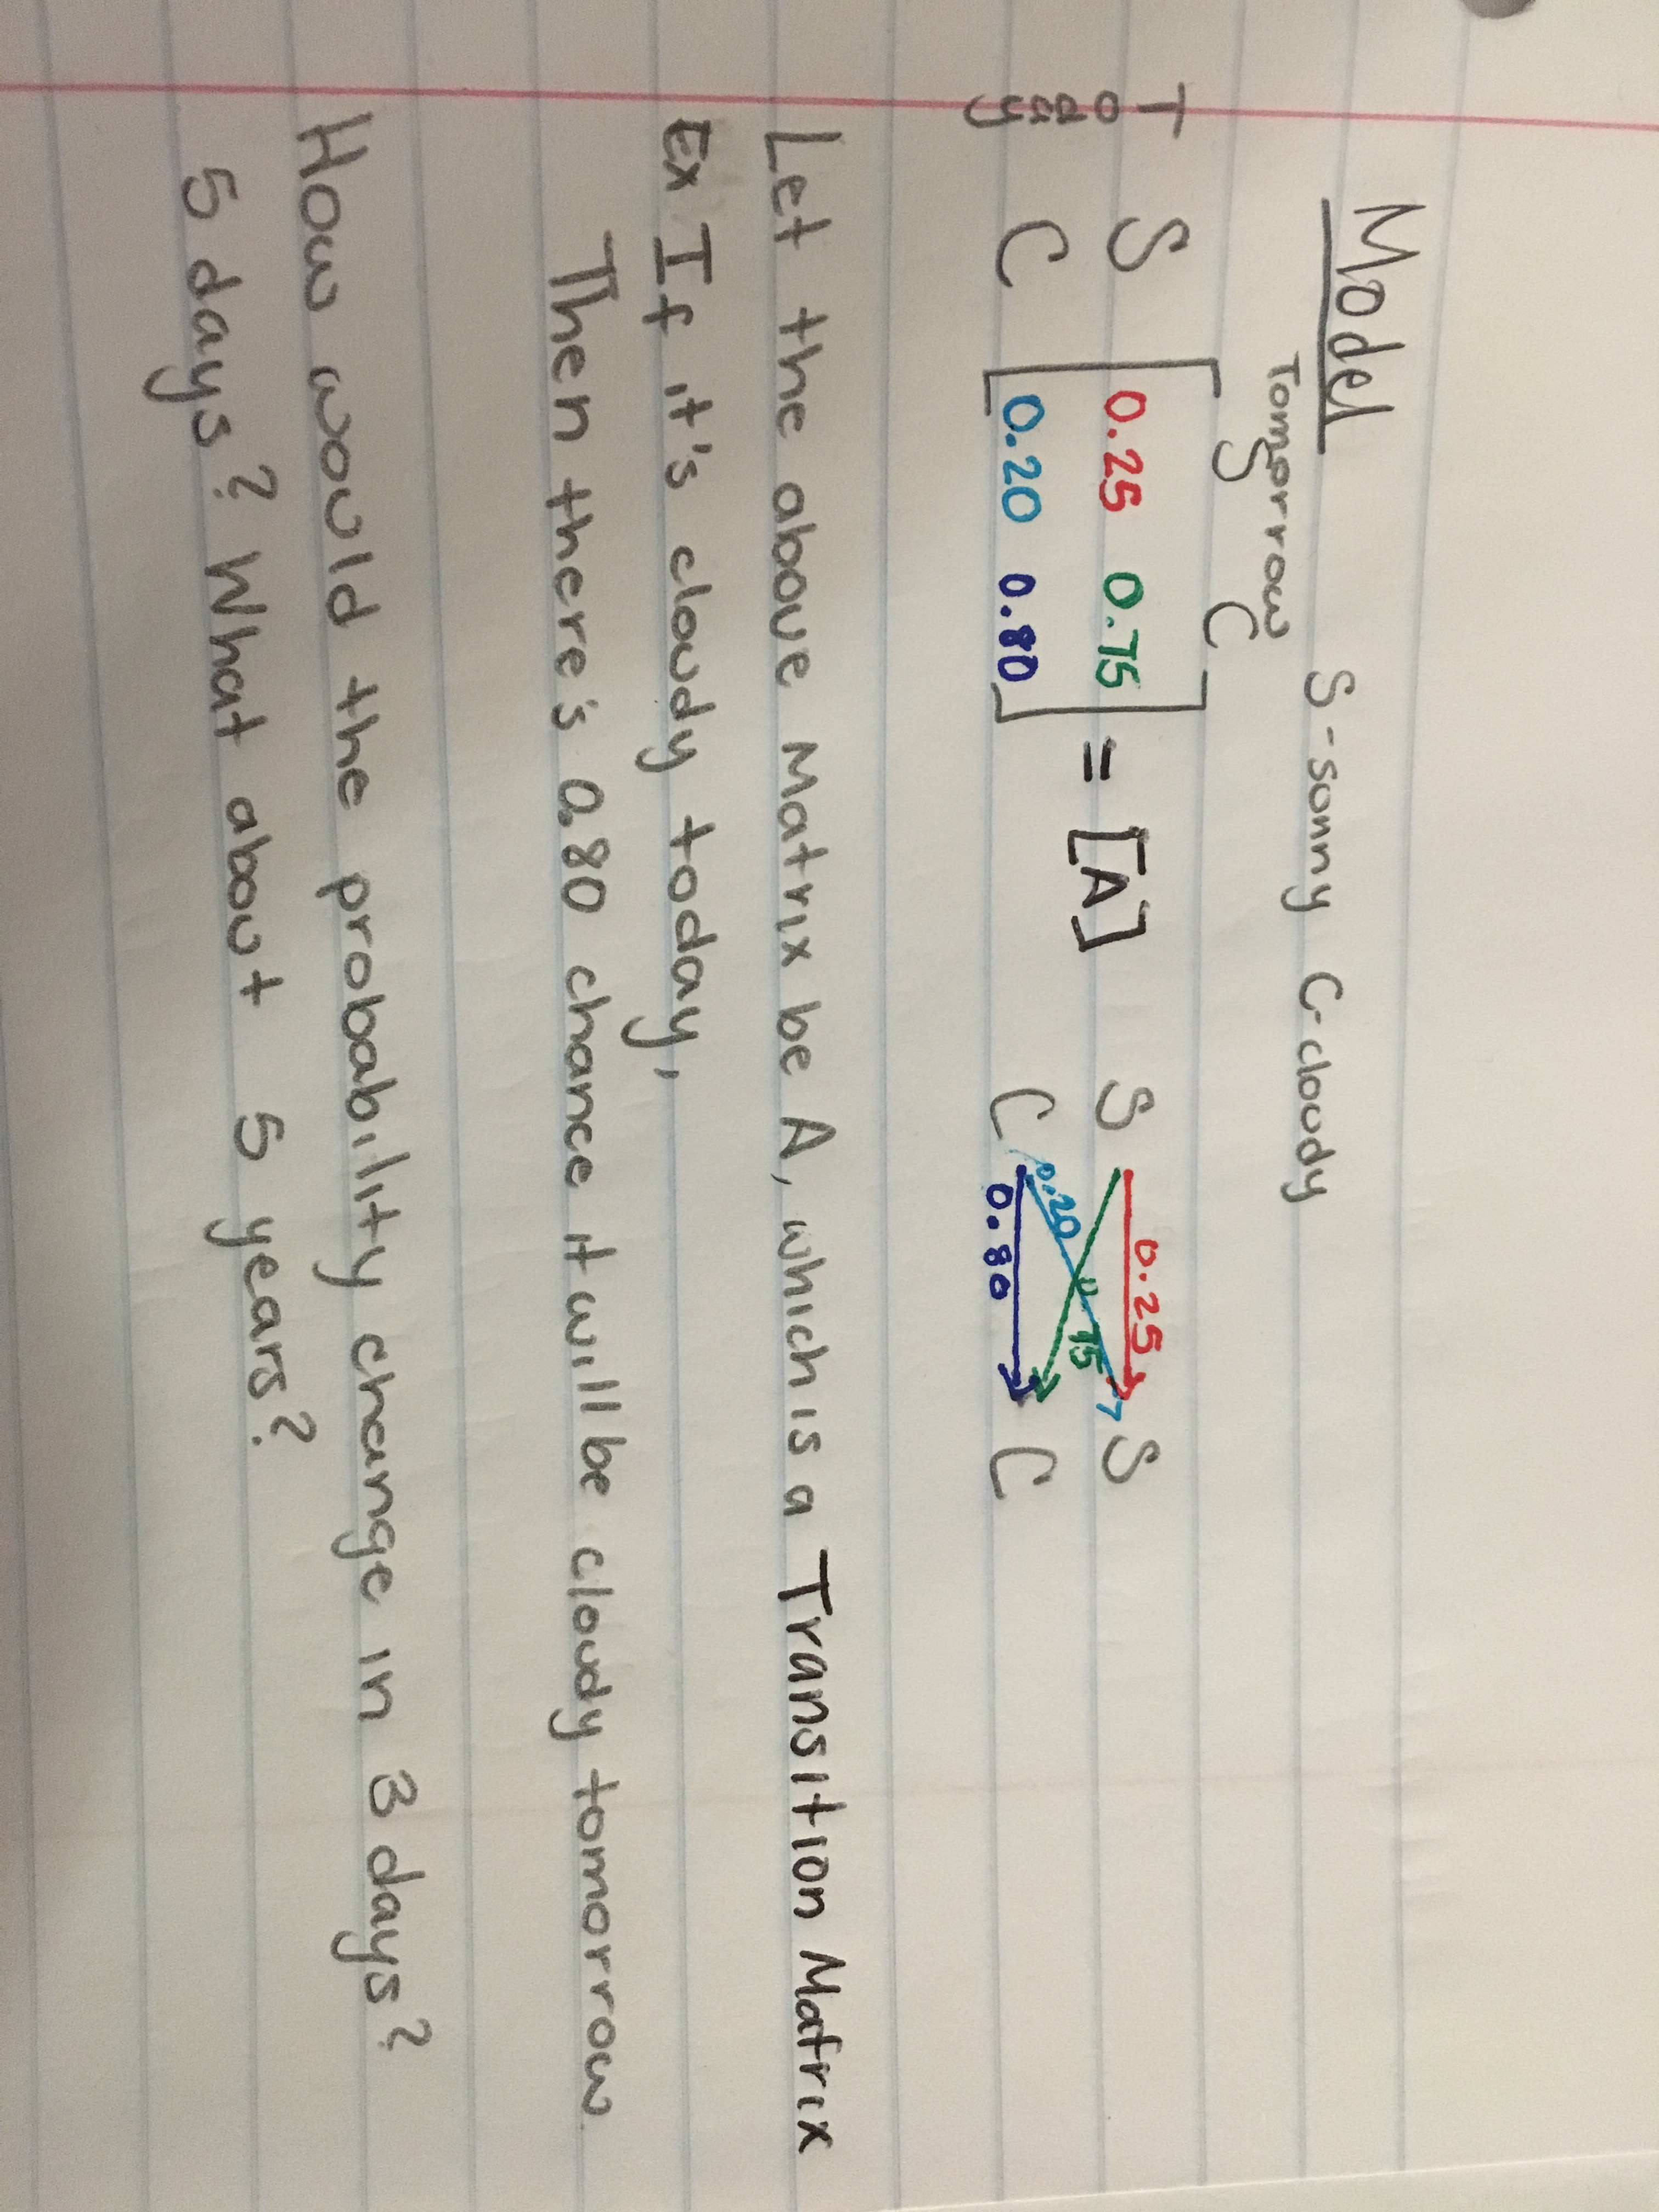 Model
S-sonny C-cloudy
Tomorrow
S C
Today
S 0.25 0.75 = [A] S 0.25 S
C 0.20 0.80 C 0.20 0.75 0.80 C
Let the above Matrix be A, which is a Transition Matrix
Ex If it's cloudy today,
Then there's 0.80 chance it will be cloudy tomorrow
How would the probability change in 3 days?
5 days? What about 5 years?